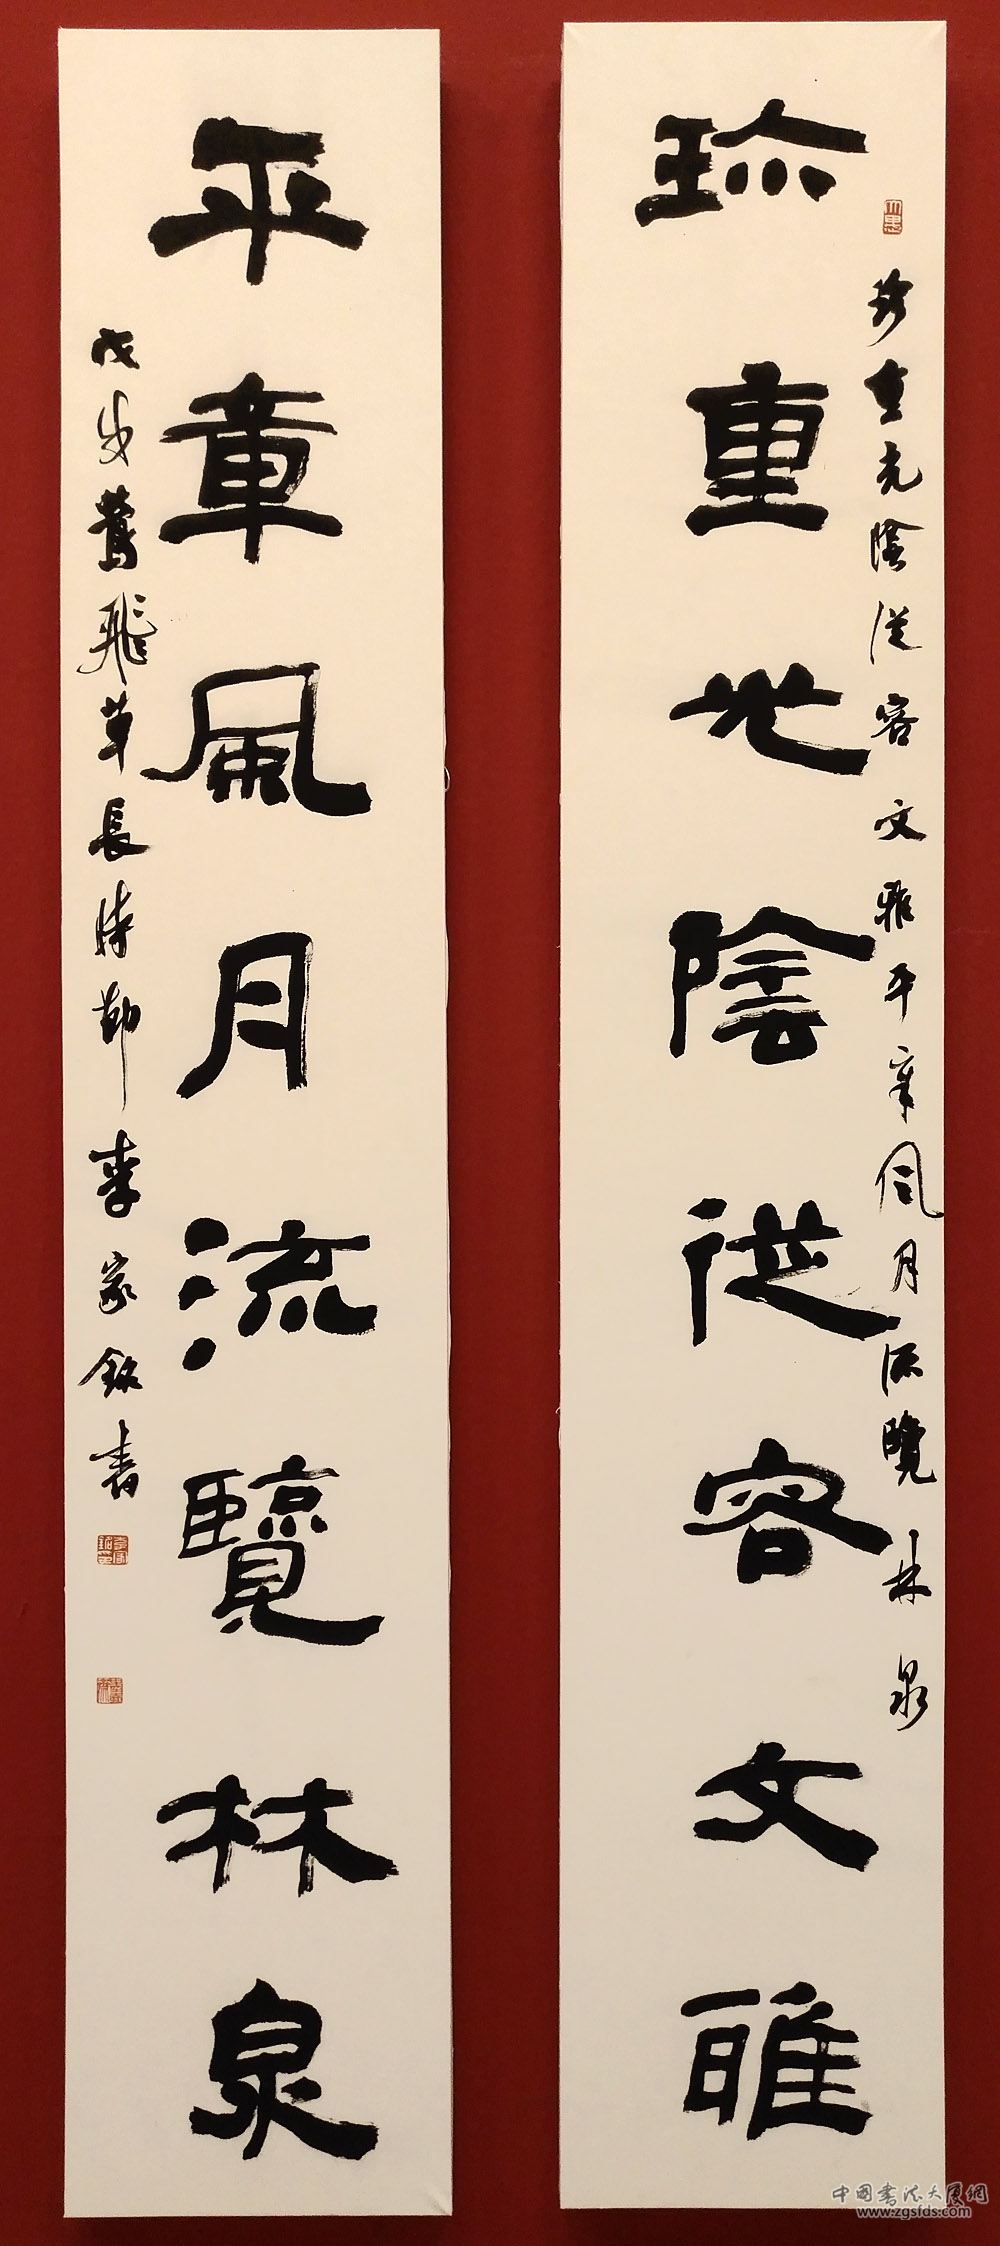 珎重光陰從容文雅
珍重光陰從容文雅平章風月流覽林泉
平章風月流覽林泉
戊戌鶯飛草長時節李家銘書
中國書法大展網
www.zgsfds.com